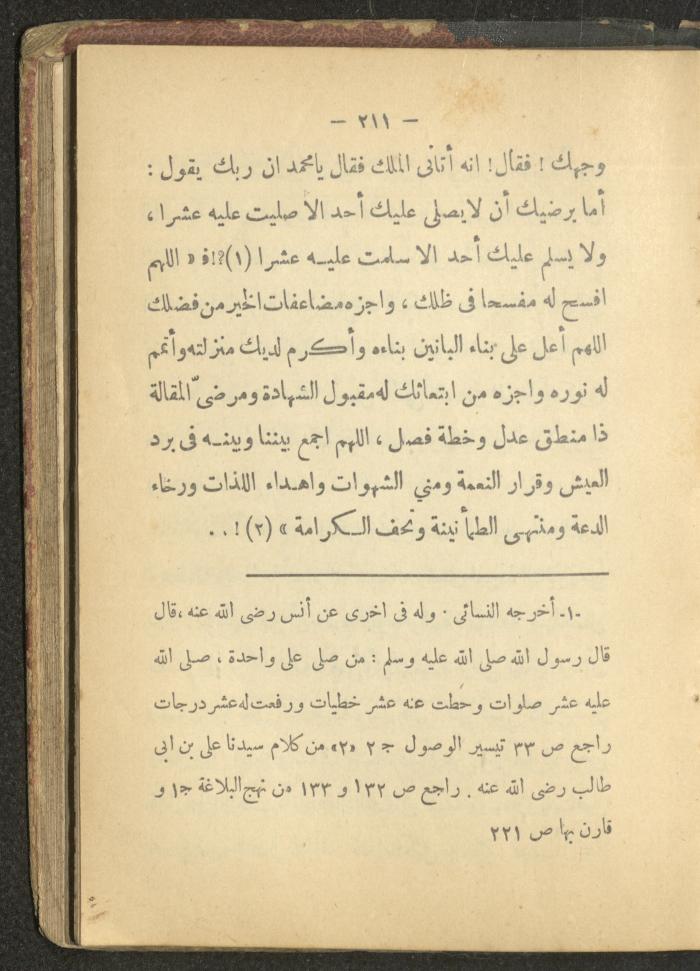 — ٢١١ —
وجهك ! فقال ! انه أتانى الملك فقال يامحمد ان ربك يقول :
أما يرضيك أن لايصلى عليك أحد الا صليت عليه عشرا ،
ولا يسلم عليك أحد الا سلمت عليه عشرا (١)؟!ف « اللهم
افسح له مفسحا فى ظلك ، واجزه مضاعفات الخير من فضلك
اللهم أعل على بناء البانين بناءه وأكرم لديك منزلته وأتمم
له نوره واجزه من ابتعاثك له مقبول الشهادة ومرضىّ المقالة
ذا منطق عدل وخطة فصل ، اللهم اجمع بيننا وبينه فى برد
العيش وقرار النعمة ومني الشهوات واهداء اللذات ورخاء
الدعة ومنتهى الطمأنينة وتحف الكرامة » (٢) ! . .
-١- أخرجه النسائى . وله فى اخرى عن أنس رضى الله عنه ،قال
قال رسول الله صلى الله عليه وسلم : من صلى على واحدة ، صلى الله
عليه عشر صلوات وحَطت عنه عشر خطيات ورفعت له عشر درجات
راجع ص ٣٣ تيسير الوصول ج ٢ «٢» من كلام سيدنا على بن ابى
طالب رضى الله عنه . راجع ص ١٣٢ و ١٣٣ من نهج البلاغة ج١ و
قارن بها ص ٢٢١